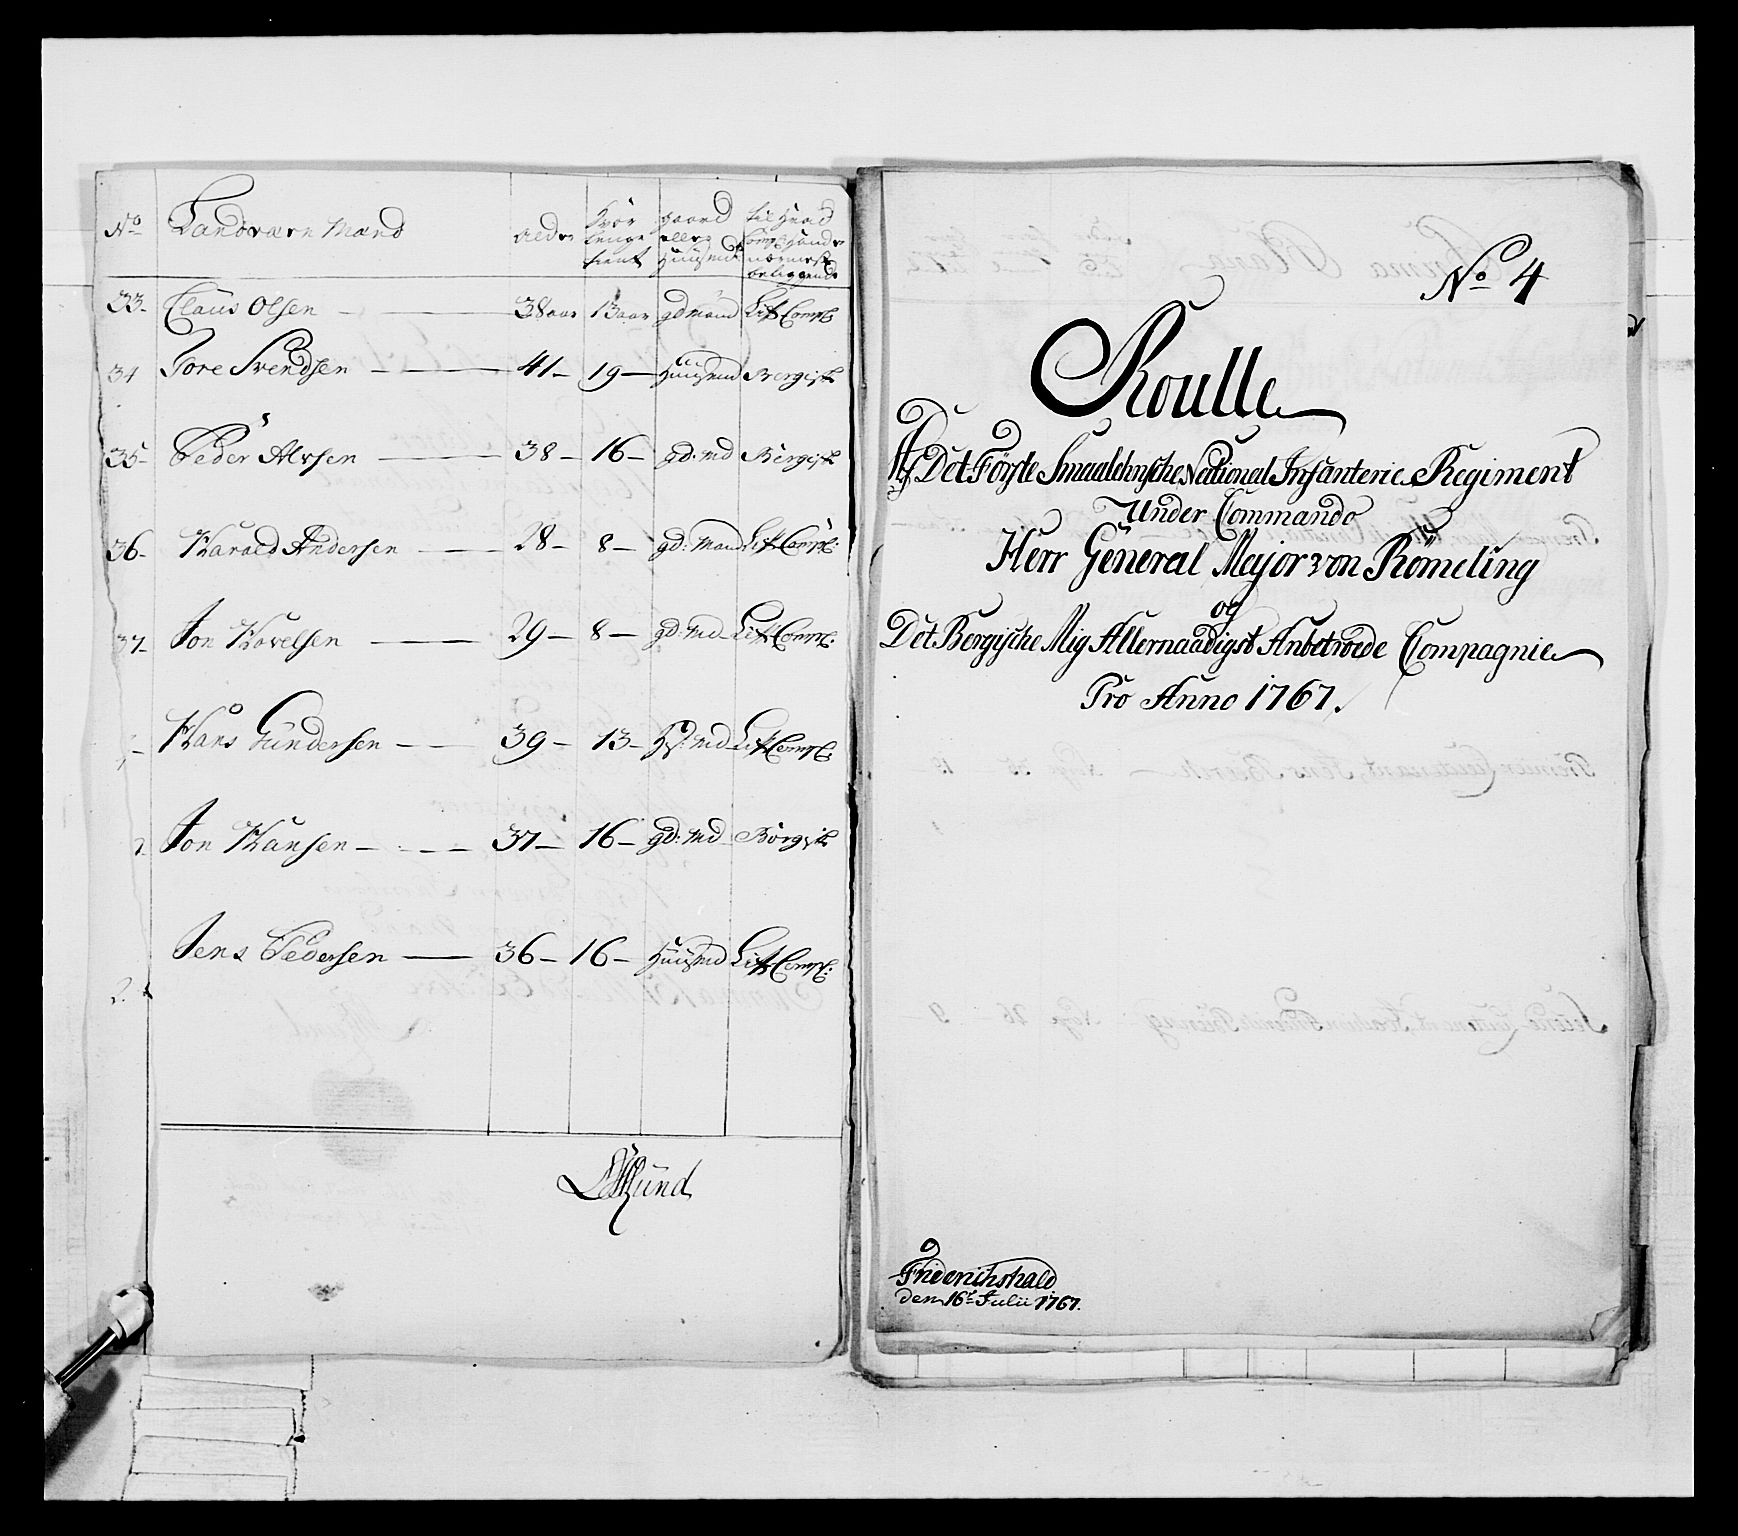 No Landværn Mænd alder hvor lenge tient gaard eller Huusmd til hvad Comp: hand er nærmest beliggende
33- Claus Olsen 38 aar 13 aar gdmand Lif Comp:
34 Tore Svendsen 41- 19- Huusmd Bergisk
35- Peder Alvsen 38- 16- gd: md Bergisk
36- Harald Andersen 28- 8- gd: mand Lif Comp:
37- Jon Hovelsen 29- 8- gd: md Lif Comp:
Hans Gundersen 39- 13- Hs: md Lif Comp:
Jon Hansen 37- 16- gd: md Bergisk
Jens Pedersen 36- 16- Huusmd Lif Comp:
Mund
No 4
Roulle
Af Det Förste Smaalehnsche National Infanterie Regiment
Under Commando
Herr General Major von Römeling
og
Det Bergische Mig Allernaadigst Anbetroede Compagnie
Pro Anno 1767.
Friderichshald
den 16t Julii 1767.